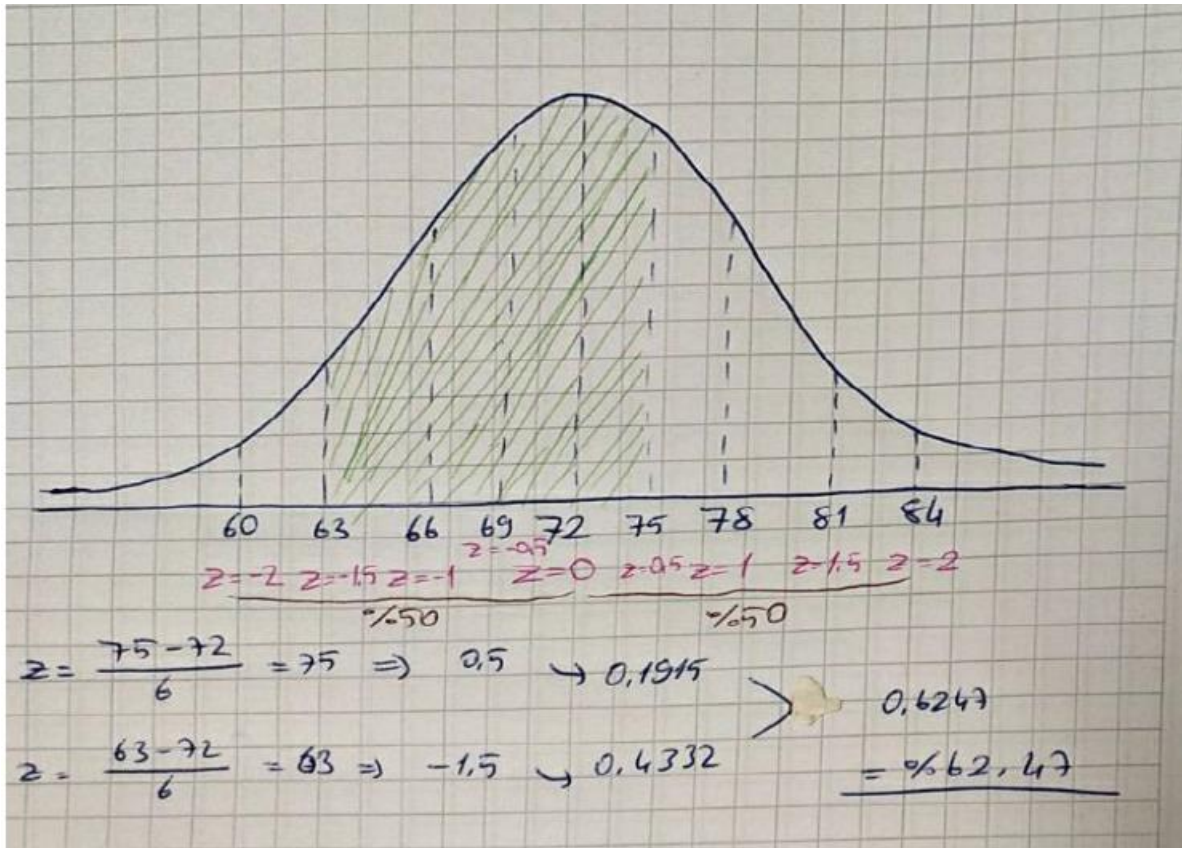 60 63 66 69 72 75 78 81 84
z=-0,5
z=-2 z=-1,5 z=-1 z=0 z=0,5 z=1 z=1,5 z=2
%50 %50
z = 75-72 / 6 = 75 ⇒ 0,5 → 0,1915
0,6247
z = 63-72 / 6 = 63 ⇒ -1,5 → 0,4332
= %62,47